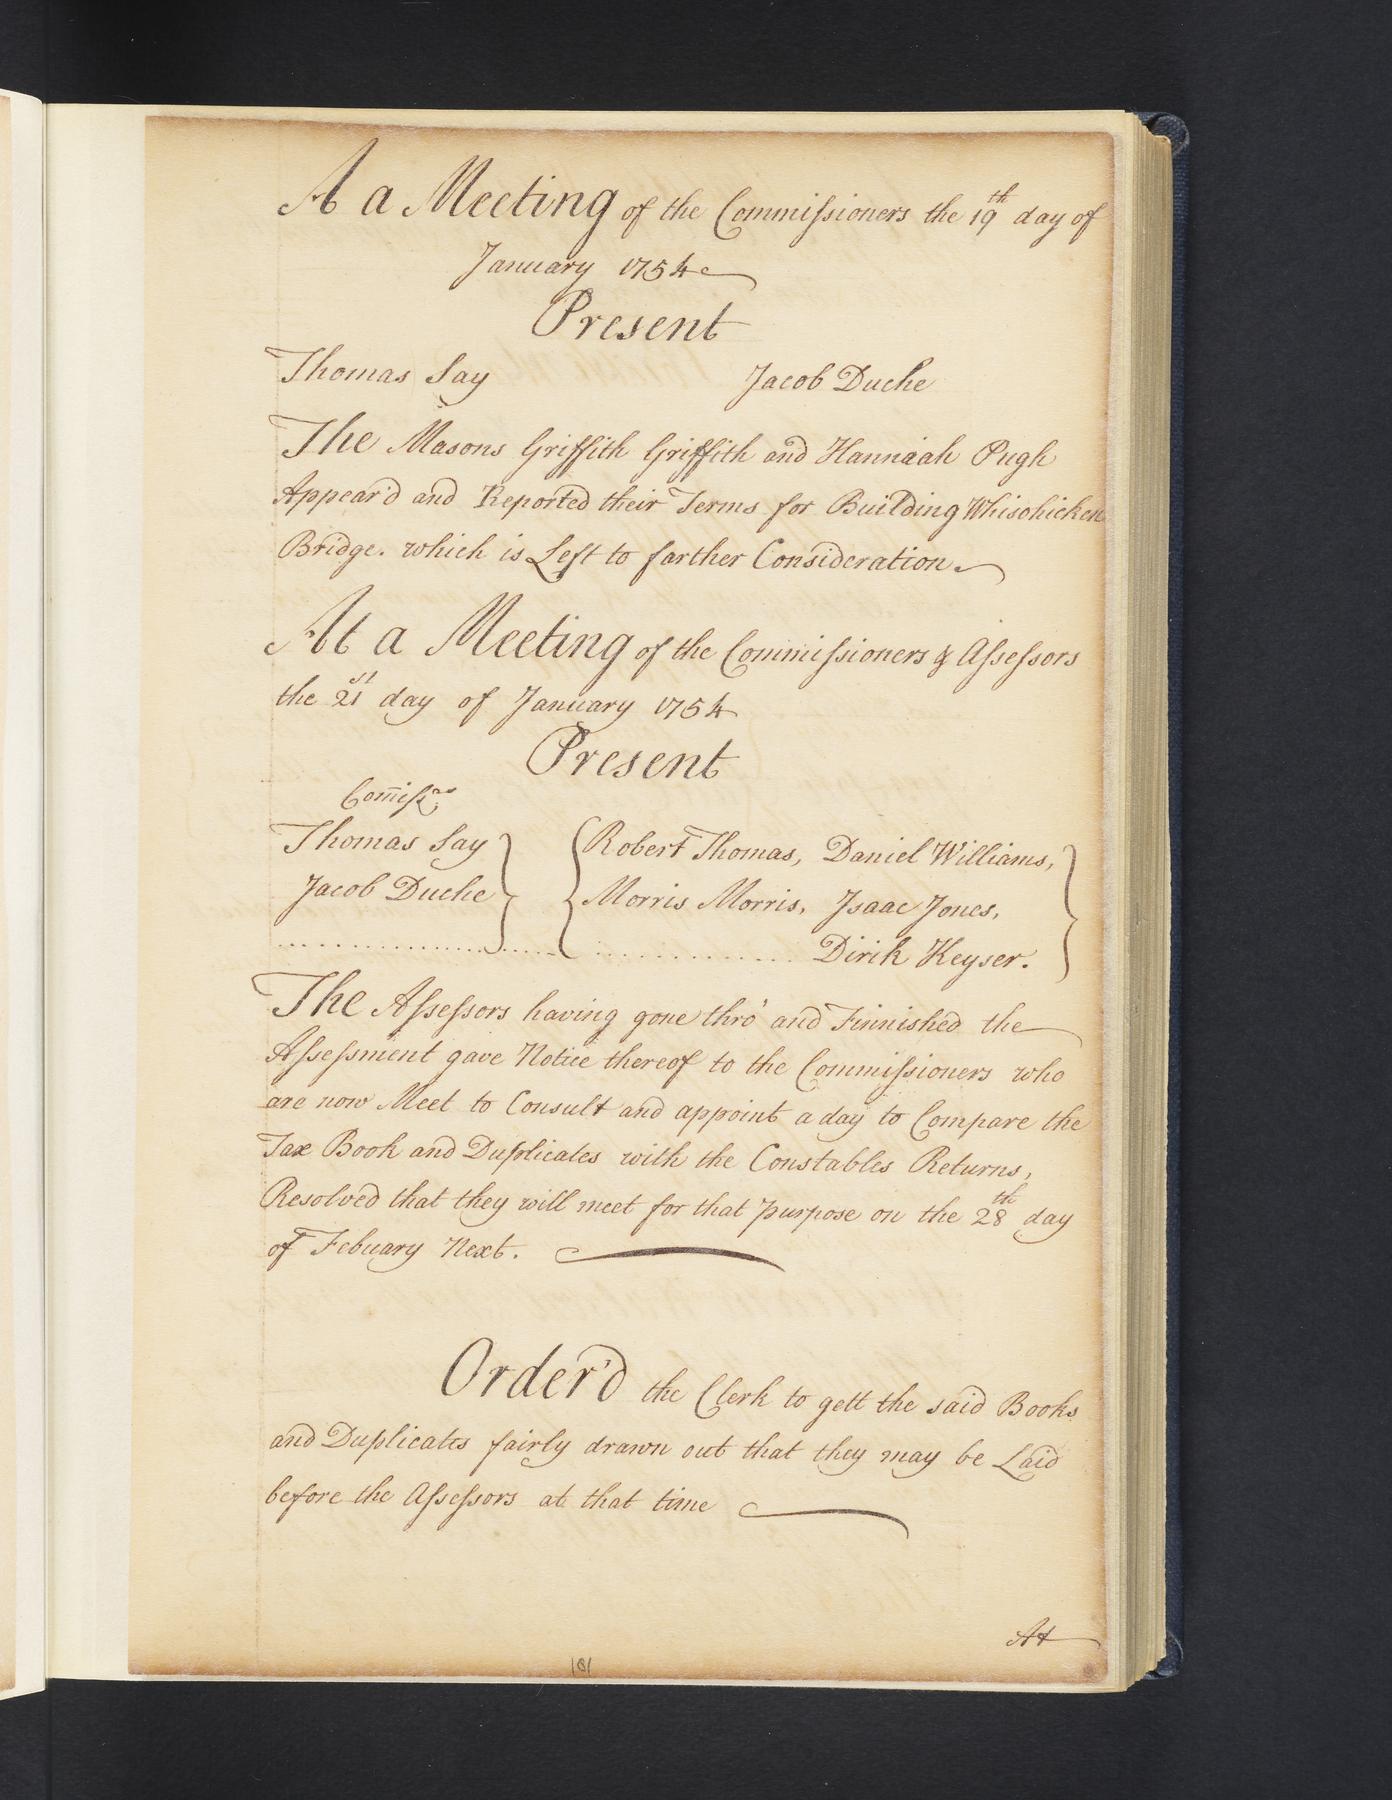 A a Meeting of the Commissioners the 19th day of
January 1754
Present
Thomas Say Jacob Duche
The Masons Griffith Griffith and Hannaah Pugh
Appear'd and Reported their Terms for Building Whisohicken
Bridge. which is Left to farther Consideration
At a Meeting of the Commissioners & Assessors
the 21st day of January 1754
Present
Comissrs
Thomas Say Robert Thomas, Daniel Williams,
Jacob Duche Morris Morris, Isaac Jones,
Dirik Keyser.
The Assessors having gone thro' and Finnished the
Assessment gave Notice thereof to the Commissioners who
are now Meet to Consult and appoint a day to Compare the
Tax Book and Duplicates with the Constables Returns,
Resolved that they will meet for that purpose on the 28th day
of Febuary Next.
Order'd the Clerk to gett the said Books
and Duplicates fairly drawn out that they may be Laid
before the Assessors at that time
At
181